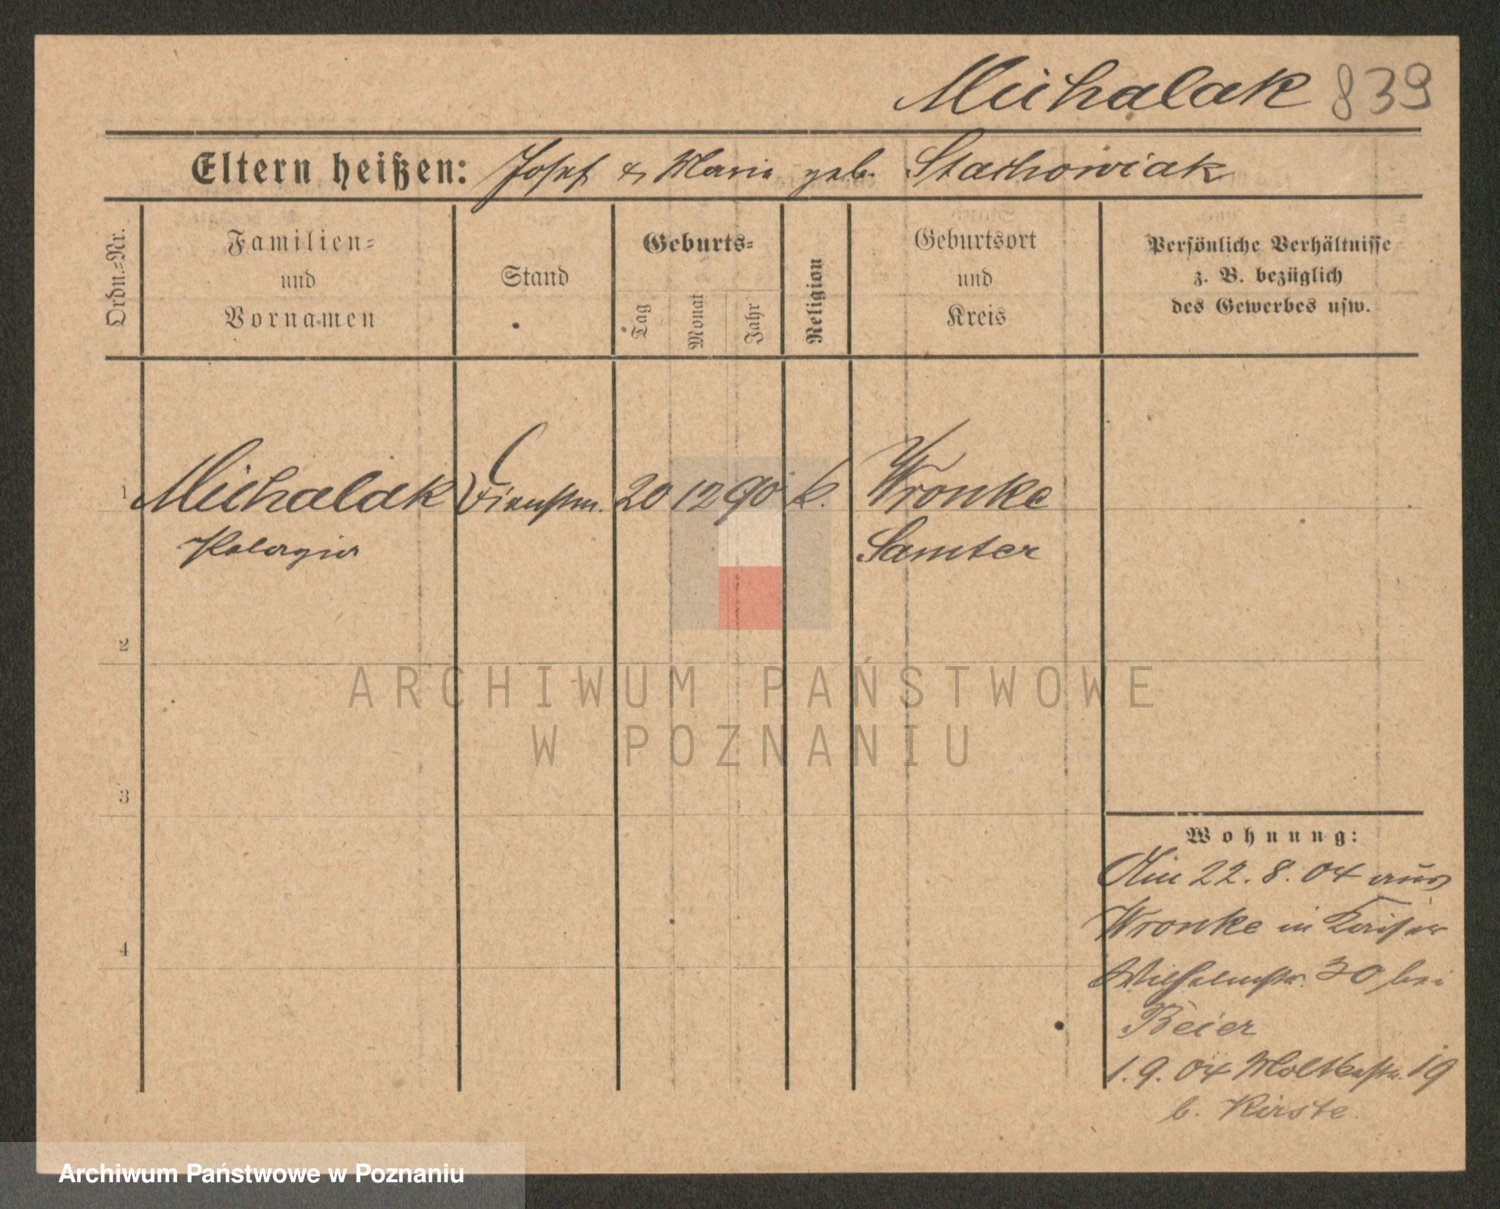 Michalak 839
Eltern heißen: Josef & Marie geb. Stachowiak
Ordn.=Nr.
Familien=
und
Vornamen
Stand
Geburts=
Tag
Monat
Jahr
Religion
Geburtsort
und
Kreis
Persönliche Verhältnisse
z. B. bezüglich
des Gewerbes usw.
1 Michalak Dienstm. 20 12 90 k. Wronke
Pelagia Samter
2
ARCHIWUM PAŃSTWOWE
W POZNANIU
3
Wohnung:
Am 22.8.04 aus
Wronke in Kaiser
4
Wilhelmstr. 30 bei
Beier
1.9.04 Moltkestr. 19
b. Kirste
Archiwum Państwowe w Poznaniu